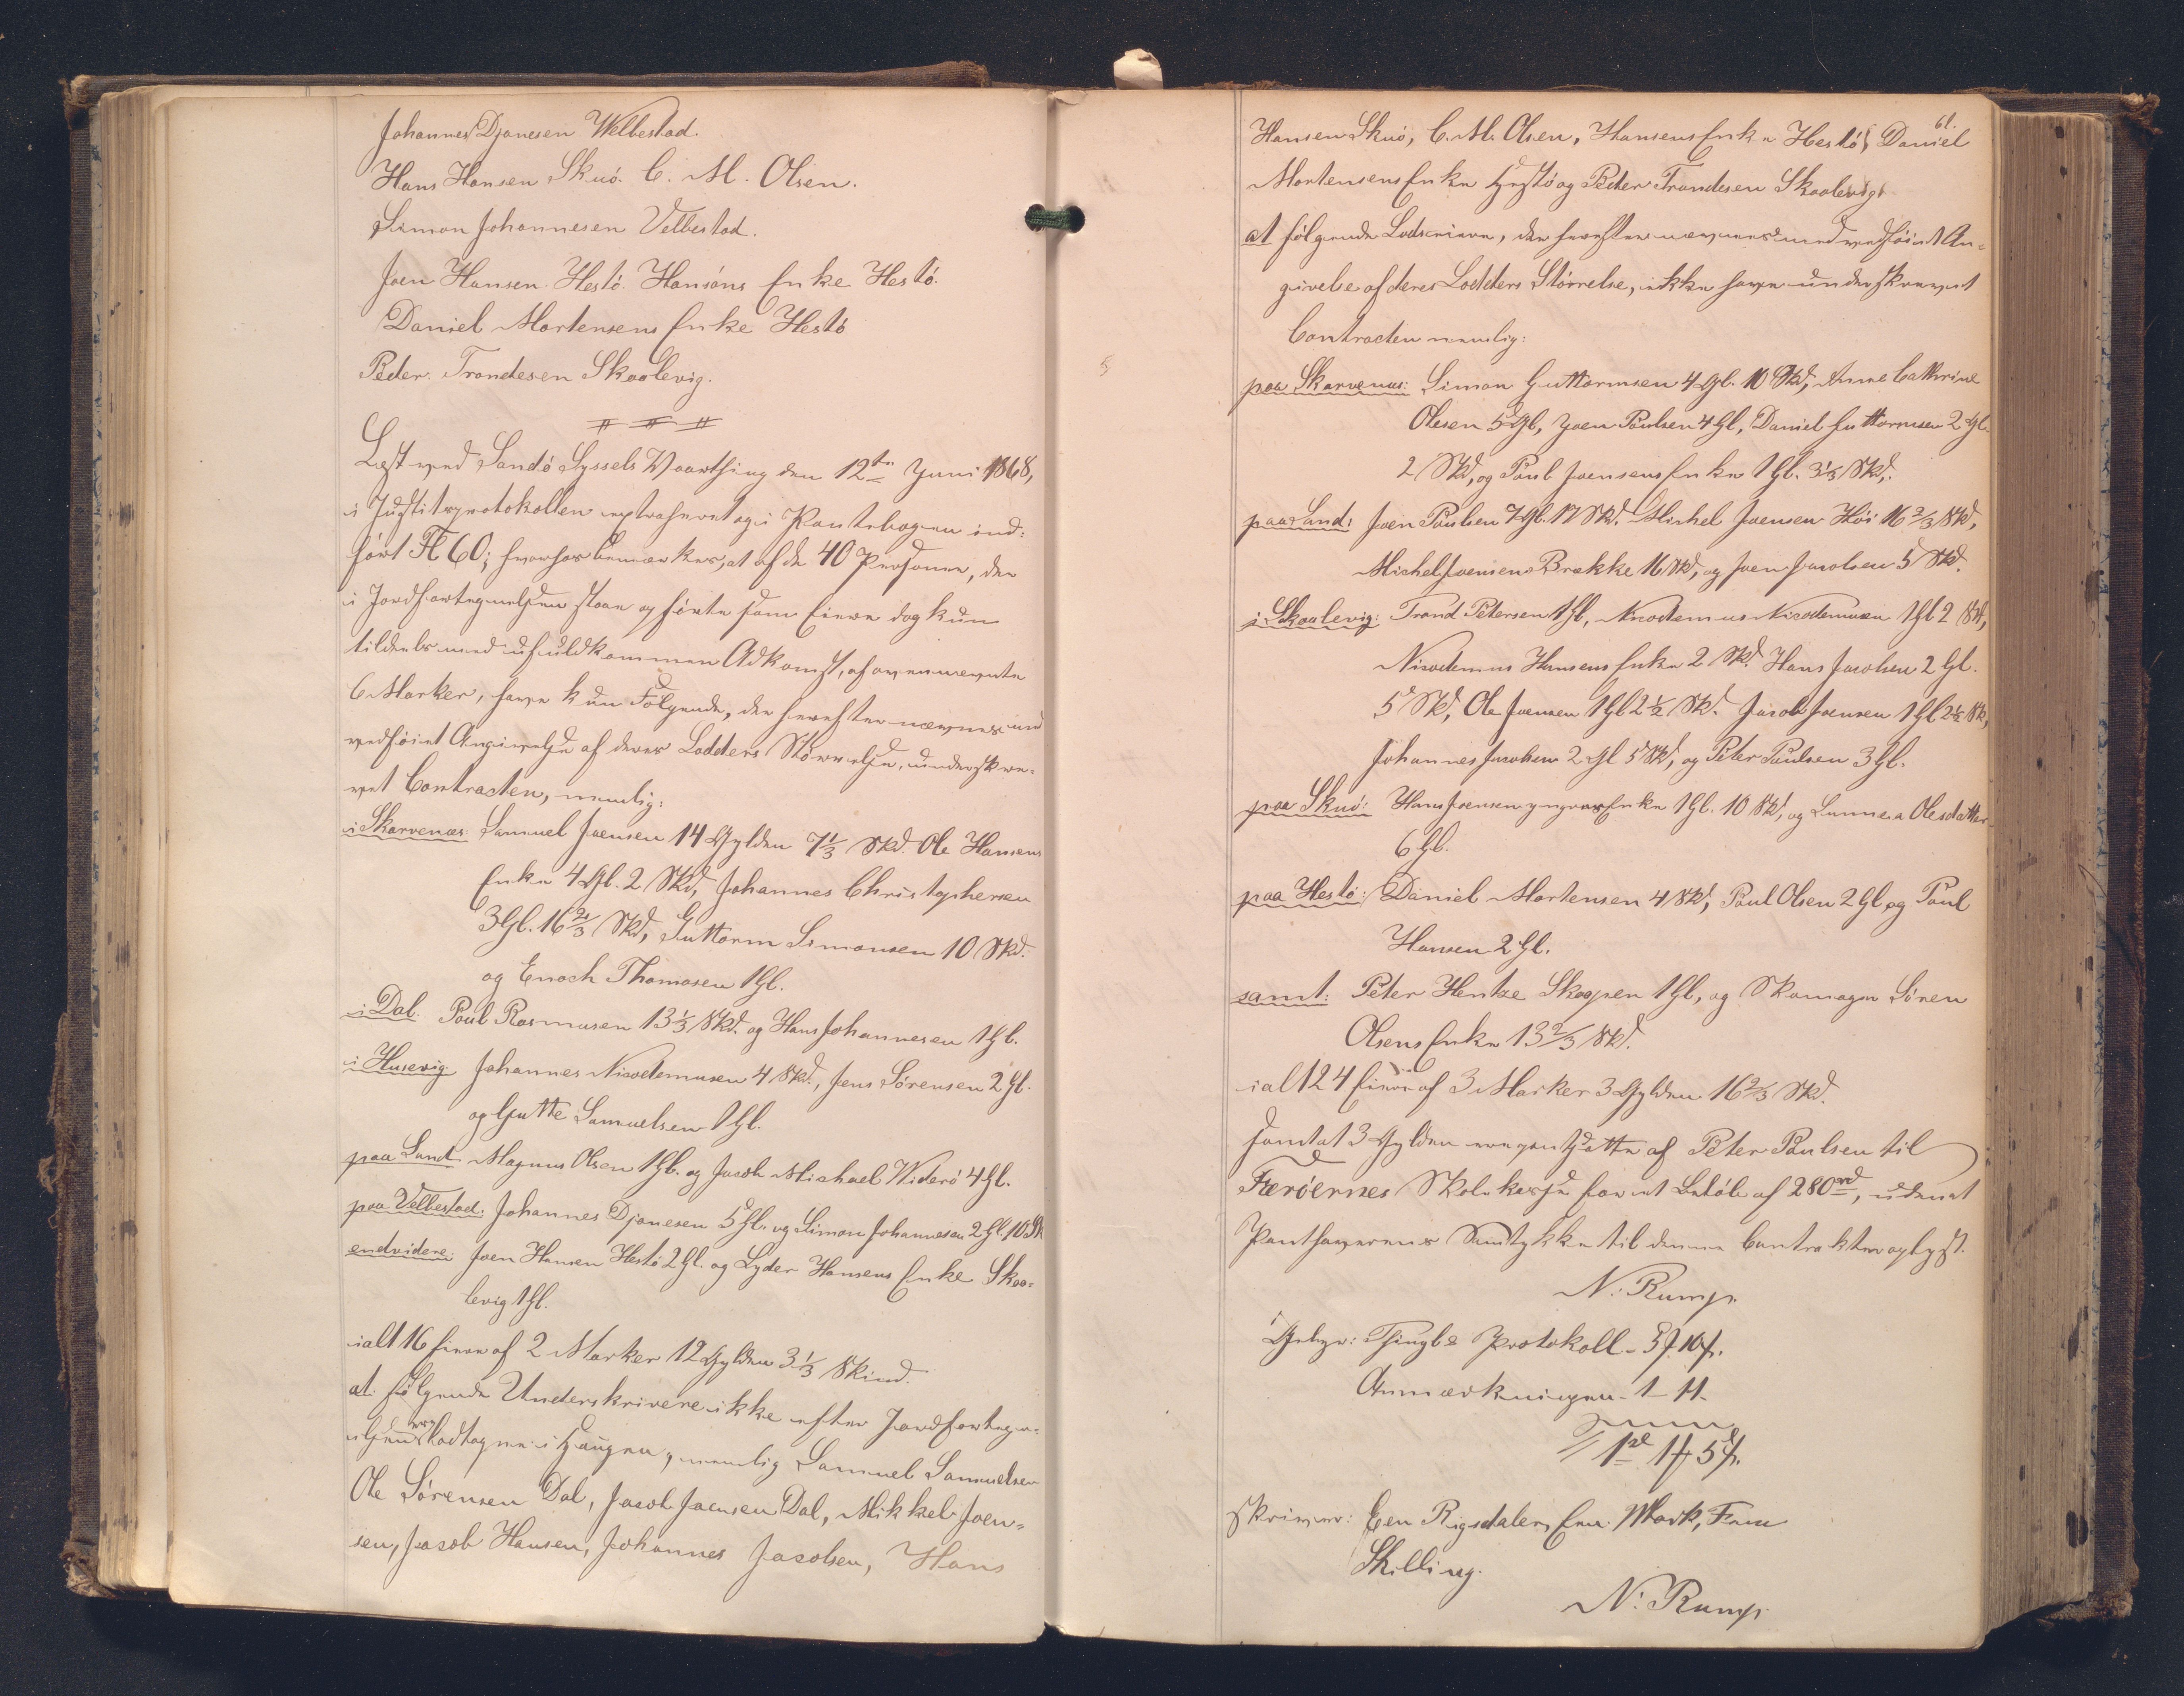 Johannes Djonesen Welbestad.
Hans Hansen Skuö. C. M. Olsen.
Simon Johannesen Velbestad.
Joen Hansen Hestö. Hansöns Enke Hestö.
Daniel Mortensens Enke Hestö
Peder Trondesen Skaalevig.
Læst ved Sandö Syssels Vaarthing den 12te Juni 1868,
i Justitsprotokollen extraheret og i Pantebogen ind-
fört Fl 60; hvorhos bemærkes, at af de 40 Personer, der
i Jordfortegnelsen staae opförte som Eiere dog kun
tildeels med ufuldkommen Adkomst, af ovennævnte
6 Marker, have kun Fölgende, der herefter nævnes med
vedföiet Angivelse af deres Lodders Störrelse, underskre-
vet Contracten, nemlig:
i Skarvenæs: Samuel Joensen 14 Gylden 7 1/3 Skd. Ole Hansens
Enke 4 Gl. 2 Skd, Johannes Christophersen
3 Gl. 16 2/3 Skd, Guttorm Simonsen 10 Skd.
og Enoch Thomasen 1 Gl.
i Dal. Poul Rasmusen 13 1/3 Skd. og Hans Johannesen 1 Gl.
i Husevig Johannes Nicodemusen 4 Skd., Jens Sörensen 2 Gl.
og Gutte Samuelsen 1 Gl.
paa Sand Magnus Olsen 1 Gl. og Jacob Michael Widerö 4 Gl.
paa Velbestad: Johannes Djonesen 5 Gl. og Simon Johannesen 2 Gl. 10 Sk
endvidere: Joen Hansen Hestö 2 Gl. og Lyder Hansens Enke Skaa-
levig 1 Gl.
ialt 16 Eiere af 2 Marker 12 Gylden 3 1/3 Skind.
at fölgende Underskrivere ikke efter Jordfortegn-
elsen ere lodtagne i Haugen, nemlig Samuel Samuelsen
Ole Sörensen Dal, Jacob Joensen Dal, Mikkel Joen-
sen, Jacob Hansen, Johannes Jacobsen, Hans
61.
Hansen Skuö, C. M. Olsen, Hansens Enke Hestö, Daniel
Mortensens Enke Hestö og Peder Trondesen Skaalevig,
at fölgende Lodseiere, der herefter nævnes med vedföiet An-
givelse af deres Lodders Störrelse, ikke have underskrevet
Contracten nemlig:
paa Skarvenæs: Simon Guttormsen 4 Gl. 10 Skd, Anne Cathrine
Olesen 5 Gl, Joen Poulsen 4 Gl, Daniel Guttormsen 2 Gl.
2 Skd, og Poul Joensens Enke 1 Gl. 3 1/3 Skd,
paa Sand: Joen Poulsen 7 Gl. 17 Skd. Michel Joensen Höi 16 2/3 Skd,
Michel Joensen Brekke 16 Skd, og Joen Jacobsen 5 Skd.
i Skaalevig: Trond Petersen 1 Gl, Nicodemus Nicodemusen 1 Gl 2 Skd,
Nicodemus Hansens Enke 2 Skd. Hans Jacobsen 2 Gl.
5 Skd, Ole Joensen 1 Gl 2 1/2 Skd. Jacob Joensen 1 Gl 2 1/2 Sk,
Johannes Jacobsen 2 Gl 5 Skd, og Peter Poulsen 3 Gl.
paa Skuö: Hans Joensen yngres Enke 1 Gl. 10 Skd, og Sunneva Olesdatter
6 Gl.
paa Hestö: Daniel Mortensen 4 Skd, Poul Olsen 2 Gl og Poul
Hansen 2 Gl.
samt: Peter Hentze Skopen 1 Gl, og Skomager Sören
Olsens Enke 13 2/3 Skd.
ialt 24 Eiere af 3 Marker 3 Gylden 16 2/3 Skd.
samt at 3 Gylden ere pantsatte af Peter Poulsen til
Færöernes Skolekasse for et Belöb af 280 rd, uden at
Panthaverens Samtykke til denne Contrakt er oplyst.
N. Rump.
Gebyr: Thingls Protokoll - 5 ƒ 10 s.
Anmærkningen - 1 - 11 -
1 rd 1 ƒ 5 s.
skriver: Een Rigsdaler, Een Mark, Fem
Skilling.
N. Rump